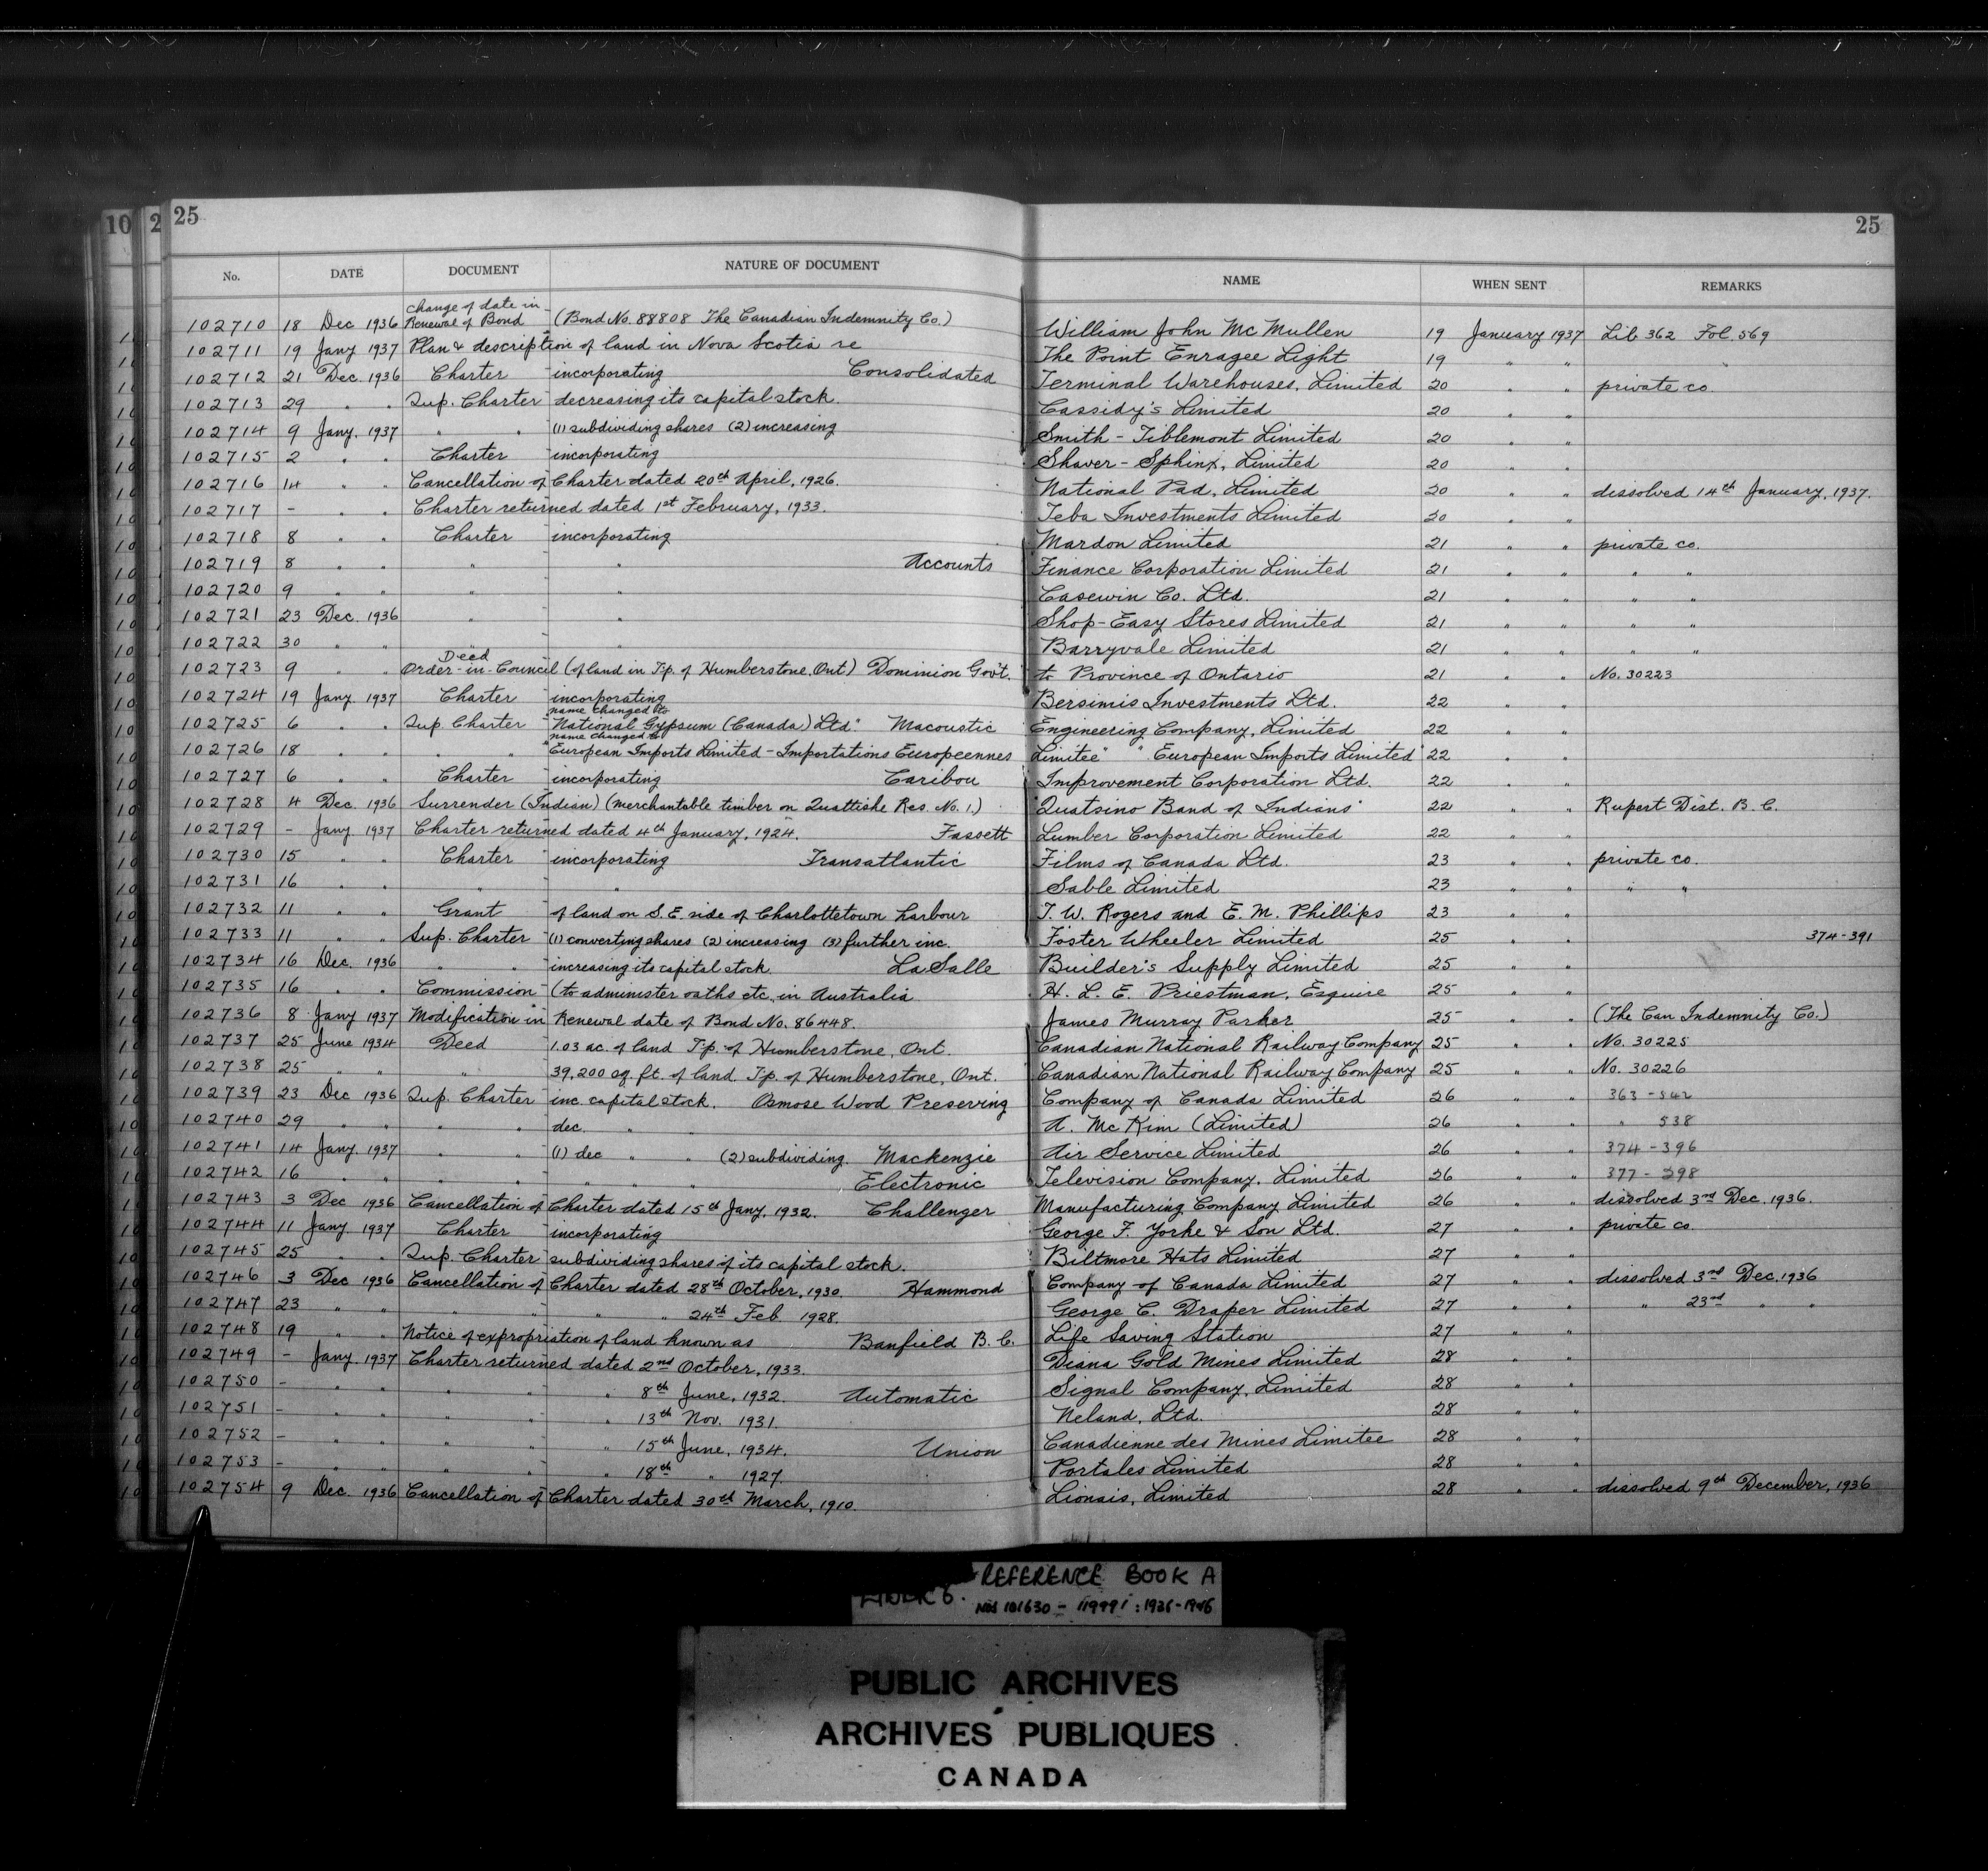 10 2 25 25
No. DATE DOCUMENT NATURE OF DOCUMENT NAME WHEN SENT REMARKS
change of date in
102710 18 Dec 1936 Renewal of Bond (Bond No. 88808 The Canadian Indemnity Co.) William John McMullen 19 January 1937 Lib 362 Fol. 569
102711 19 Jany 1937 Plan & description of land in Nova Scotia re The Point Enragee Light 19 " "
102712 21 Dec. 1936 Charter incorporating Consolidated Terminal Warehouses, Limited 20 " " private co
102713 29 " " Sup. Charter decreasing its capital stock. Cassidy's Limited 20 " "
102714 9 Jany. 1937 " " (1) subdividing shares (2) increasing Smith - Tiblemont Limited 20 " "
102715 2 " " Charter incorporating Shaver - Sphinx, Limited 20 " "
102716 14 " " Cancellation of Charter dated 20th April, 1926. National Pad, Limited 20 " " dissolved 14th January, 1937.
102717 - " " Charter returned dated 1st February, 1933. Teba Investments Limited 20 " "
102718 8 " " Charter incorporating Mardon Limited 21 " " private co.
102719 8 " " " " Accounts Finance Corporation Limited 21 " " " "
102720 9 " " " " Casewin Co. Ltd. 21 " " " "
102721 23 Dec. 1936 " " Shop-Easy Stores Limited 21 " " " "
102722 30 " " " " Barryvale Limited 21 " " " "
Deed
102723 9 " " Order-in-Council (of land in Tp. of Humberstone, Ont) Dominion Gov't. to Province of Ontario 21 " " No. 30223
102724 19 Jany. 1937 Charter incorporating Bersimis Investments Ltd. 22 " "
name changed to
102725 6 " " Sup. Charter "National Gypsum (Canada) Ltd." Macoustic Engineering Company, Limited 22 " "
name changed to
102726 18 " " " " "European Imports Limited - Importations Europeennes Limitée" "European Imports Limited" 22 " "
102727 6 " " Charter incorporating Caribou Improvement Corporation Ltd. 22 " "
102728 4 Dec. 1936 Surrender (Indian) (merchantable timber on Quattishe Res. No. 1.) "Quatsino Band of Indians" 22 " " Rupert Dist. B. C.
102729 - Jany 1937 Charter returned dated 4th January, 1924. Fassett Lumber Corporation Limited 22 " "
102730 15 " " Charter incorporating Transatlantic Films of Canada Ltd. 23 " " private co.
102731 16 " " " " Sable Limited 23 " " " "
102732 11 " " Grant of land on S.E. side of Charlottetown harbour T. W. Rogers and E. M. Phillips 23 " "
102733 11 " " Sup. Charter (1) converting shares (2) increasing (3) further inc. Foster Wheeler Limited 25 " " 374-391
102734 16 Dec. 1936 " " increasing its capital stock. LaSalle Builder's Supply Limited 25 " "
102735 16 " " Commission (to administer oaths etc. in Australia H. L. E. Priestman, Esquire 25 " "
102736 8 Jany 1937 Modification in Renewal date of Bond No. 86448. James Murray Parker 25 " " (The Can Indemnity Co.)
102737 25 June 1934 Deed 1.03 ac. of land Tp. of Humberstone, Ont. Canadian National Railway Company 25 " " No. 30225
102738 25 " " " 39,200 sq. ft. of land. Tp. of Humberstone, Ont. Canadian National Railway Company 25 " " No. 30226
102739 23 Dec 1936 Sup. Charter inc. capital stock. Osmose Wood Preserving Company of Canada Limited 26 " " 363-542
102740 29 " " " " dec. " " A. McKim (Limited) 26 " " " 538
102741 14 Jany. 1937 " " (1) dec " " (2) subdividing. Mackenzie Air Service Limited 26 " " 374-396
102742 16 " " " " " " " Electronic Television Company, Limited 26 " " 377-398
102743 3 Dec 1936 Cancellation of Charter dated 15th Jany, 1932. Challenger Manufacturing Company Limited 26 " " dissolved 3rd Dec. 1936.
102744 11 Jany. 1937 Charter incorporating George F. Yorke & Son Ltd. 27 " " private co.
102745 25 " " Sup. Charter subdividing shares of its capital stock. Biltmore Hats Limited 27 " "
102746 3 Dec 1936 Cancellation of Charter dated 28th October, 1930. Hammond Company of Canada Limited 27 " " dissolved 3rd Dec. 1936
102747 23 " " " " " " 24th Feb 1928. George C. Draper Limited 27 " " " 23rd " "
102748 19 " " Notice of expropriation of land known as Banfield B. C. Life Saving Station 27 " "
102749 - Jany. 1937 Charter returned dated 2nd October, 1933. Diana Gold Mines Limited 28 " "
102750 - " " " " " 8th June, 1932. Automatic Signal Company, Limited 28 " "
102751 - " " " " " 13th Nov. 1931. Neland, Ltd. 28 " "
102752 - " " " " " 15th June, 1934. Union Canadienne des Mines Limitee 28 " "
102753 - " " " " " 18th " 1927. Portales Limited 28 " "
102754 9 Dec. 1936 Cancellation of Charter dated 30th March, 1910. Lionais, Limited 28 " " dissolved 9th December, 1936
REFERENCE BOOK A
PUBLIC ARCHIVES
ARCHIVES PUBLIQUES
CANADA